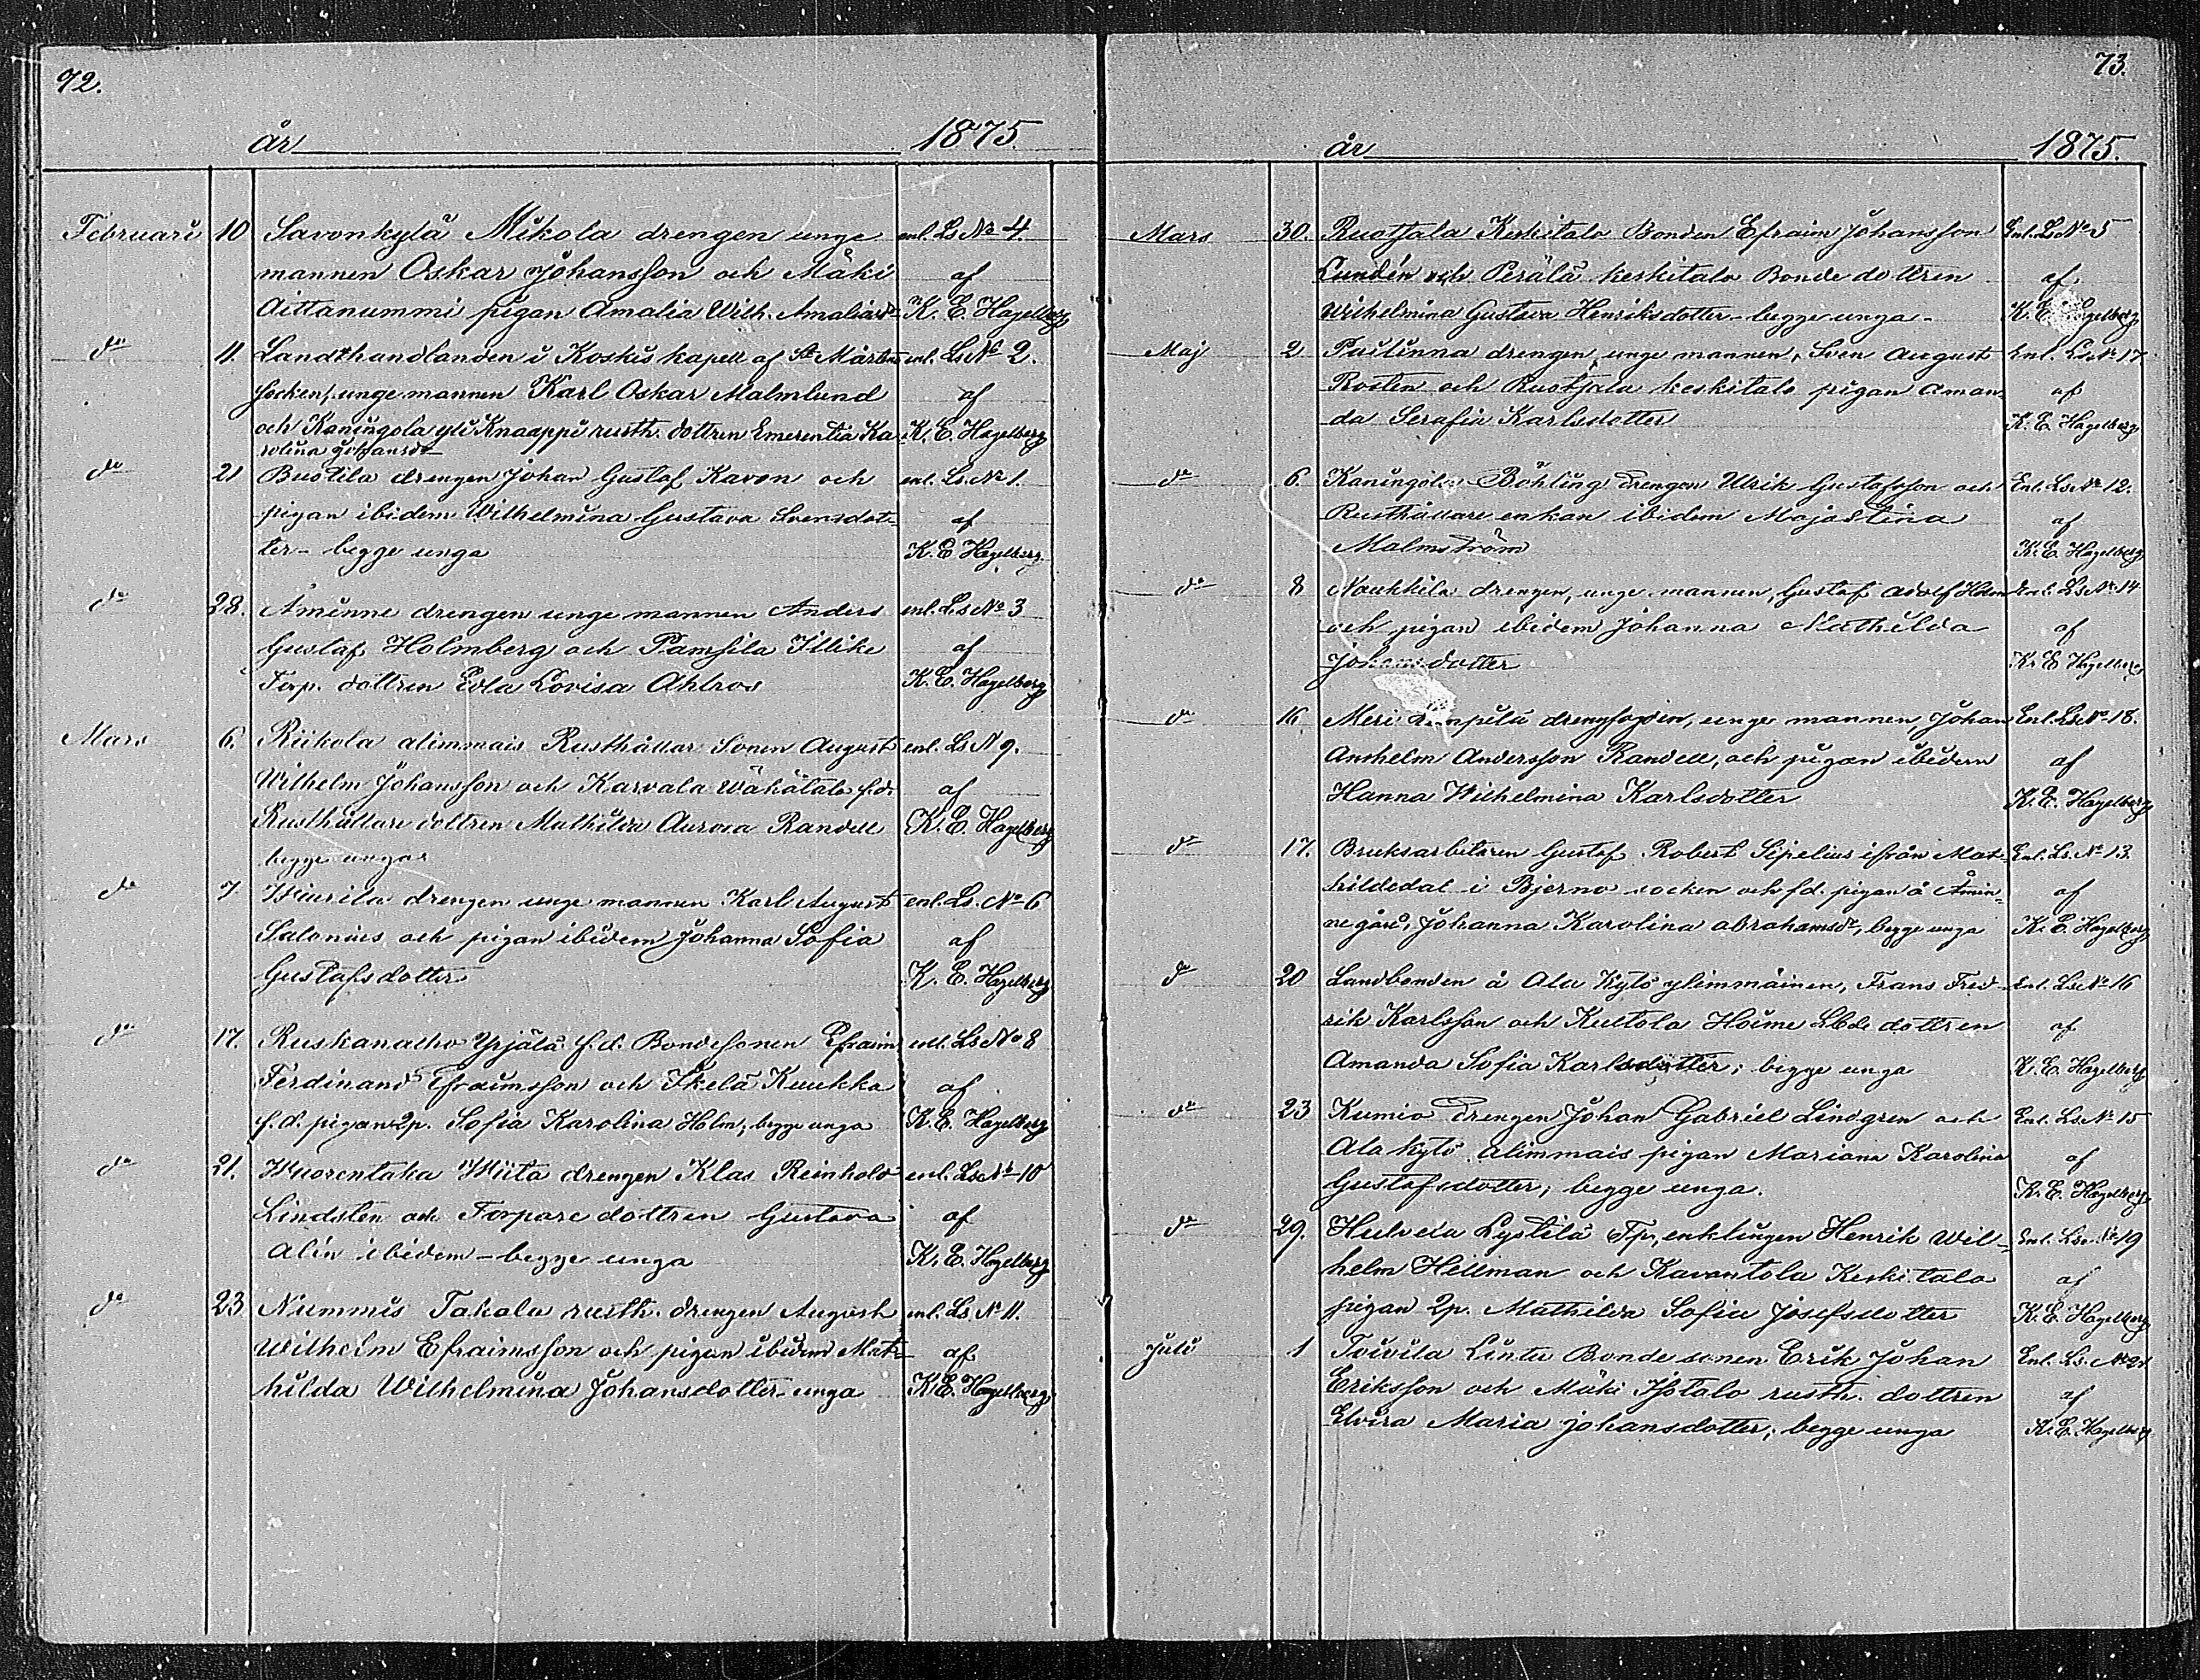 72.
år 1875.
Februari 10 Savonkylä Mikola drengen unge enl. Ls No 4.
mannen Oskar Johansson och Mäki af
Aittanummi pigan Amalia Wilh. Amaliasdr K. E. Hagelberg
do 11. Landthandlanden i Koskis kapell af St Mårtens enl. Ls No 2.
socken, unge mannen Karl Oskar Malmlund af
och Kaningola yli Knaappi rusth. dottren Emerentia Ka- K. E. Hagelberg
rolina Johansdr
do 21 Bustila drengen Johan Gustaf Kavon och enl. Ls. No 1.
pigan ibidem Wilhelmina Gustava Svensdot- af
ter - begge unga K. E. Hagelberg
do 28. Åminne drengen unge mannen Anders enl. Ls No 3
Gustaf Holmberg och Pamsila Illike af
Torp. dottren Edla Lovisa Ahlros K. E. Hagelberg
Mars 6. Riikola alimmais Rusthållar Sonen August enl. Ls N 9.
Wilhelm Johansson och Karvala Wähätalo f.d. af
Rusthållare dottren Mathilda Aurora Randell K. E. Hagelberg
begge unga
do 7 Wiurila drengen unge mannen Karl August enl. Ls. No 6
Salonius och pigan ibidem Johanna Sofia af
Gustafsdotter K. E. Hagelberg
do 17. Ruskanalho Yrjälä f.d. Bondesonen Efraim enl. Ls No 8
Ferdinand Efraimsson och Ikelä Kuukka af
f.d. pigan 2p. Sofia Karolina Holm, begge unga K. E. Hagelberg
do 21. Wuorentaka Wiita drengen Klas Reinhold enl. Ls No 10
Lindsten och Torpare dottren Gustava af
Alin ibidem - begge unga K. E. Hagelberg
do 23. Nummis Takala rusth. drengen August enl. Ls. No 11.
Wilhelm Efraimsson och pigan ibidem Mat- af
hilda Wilhelmina Johansdotter unga K. E. Hagelberg
73.
år 1875.
Mars 30. Ruotsala Keskitalo Bonden Efraim Johansson Enl. Ls No 5
Lundén och Perälä keskitalo Bonde dottren af
Wilhelmina Gustava Henriksdotter - begge unga - K. E. Hagelberg
Maj 2 Puilinna drengen, unge mannen, Sven August Enl. Ls No 17
Rosten och Ruotsala keskitalo pigan Aman- af
da Serafia Karlsdotter K. E. Hagelberg
do 6. Kaningola Böhling drengen Ulrik Gustafsson och Enl. Ls No 12.
Rusthållare enkan ibidem Maja Stina af
Malmström K. E. Hagelberg
do 8 Naukkila drengen, unge mannen, Gustaf Adolf Holm Enl. Ls No 14
och pigan ibidem Johanna Mathilda af
Johansdotter K. E. Hagelberg
do 16 Meri drengfogden, unge mannen, Johan Enl. Ls No 18.
Anshelm Andersson Randell, och pigan ibidem af
Hanna Wilhelmina Karlsdotter K. E. Hagelberg
do 17. Bruksarbetaren Gustaf Robert Sipelius ifrån Mat- Enl. Ls. No 13.
hildedal i Bjerno socken och f.d. pigan å Åmin- af
ne gård, Johanna Karolina Abrahamsdr, begge unga K. E. Hagelberg
do 20 Landbonden å Ala Kytö ylimmäinen, Frans Fred- Enl. Ls No 16
rik Karlsson och Kultola Hoime Lbde dottren af
Amanda Sofia Karlsdotter; begge unga K. E. Hagelberg
do 23 Kumio drengen Johan Gabriel Lindgren och Enl. Ls. No 15
Ala kytö alimmais pigan Mariana Karolina af
Gustafsdotter; begge unga. K. E. Hagelberg
do 29. Hulvela Lystilä Tp. enklingen Henrik Wil- Enl. Ls. No 19
helm Hellman och Kavantola Keskitalo af
pigan 2p. Mathilda Sofia Josefsdotter K. E. Hagelberg
Juli 1 Toivila Lintu Bonde sonen Erik Johan Enl. Ls. No 21
Eriksson och Mäki Isotalo rusth. dottren af
Elvira Maria Johansdotter; begge unga K. E. Hagelberg